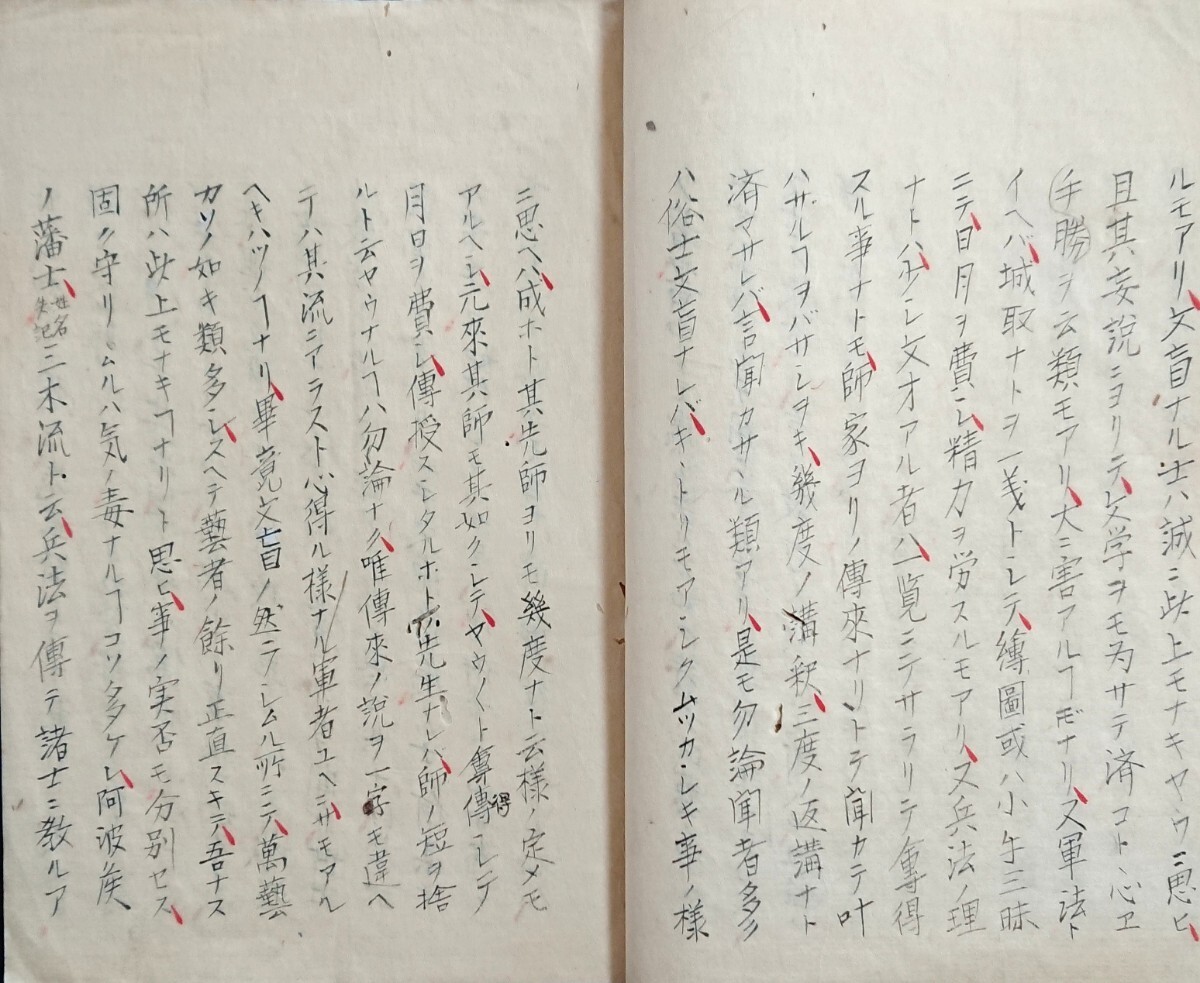 ルモアリ文盲ナル士ハ誠ニ此上モナキヤウニ思ヒ
且其妄說ニヨリテ文学ヲモ為サテ済コト心ヱ
手勝ヲ云類モアリ大ニ害アルヿ𪜈ナリ又軍法ト
イヘバ城取ナトヲ一義トシテ縄圖或ハ小午三昧
ニテ日月ヲ費シ精力ヲ労スルモアリ又兵法ノ理
ナトハ少シ文才アル者ハ一覧ニテサラリテ會得
スル事ナトモ師家ヨリノ傳來ナリトテ聞カテ叶
ハザルヿヲバサシヲキ幾度ノ講釈三度ノ返講ナト
済マサレバ言聞カサヽル類アリ是モ勿論聞者多ク
ハ俗士文盲ナレバキヽトリモアシクムツカシキ事ノ様
ニ思ヘハ成ホト其先師ヨリモ幾度ナト云様ノ定メモ
アルヘシ元來其師モ其如クシテヤウ〱ト傳得シテ
月日ヲ費シ傳授スシタルホトノ先生ナレバ師ノ短ヲ捨
ルト云ヤウナルヿハ勿論ナク唯傳來ノ說ヲ一字モ違ヘ
テハ其流ニアラスト心得ル様ナル軍者ユヘニサモアル
ヘキハツノヿナリ畢竟文盲ノ然ラシムル所ニテ萬藝
カツノ如キ類多シスヘテ藝者ノ餘リ正直スキテ吾ナス
所ハ此上モナキヿナリト思ヒ事ノ実否モ分別セス
固ク守リシムルハ気ノ毒ナルヿコソ多ケレ阿波侯
ノ藩士姓名失記三木流ト云兵法ヲ傳テ諸士ニ教ルア